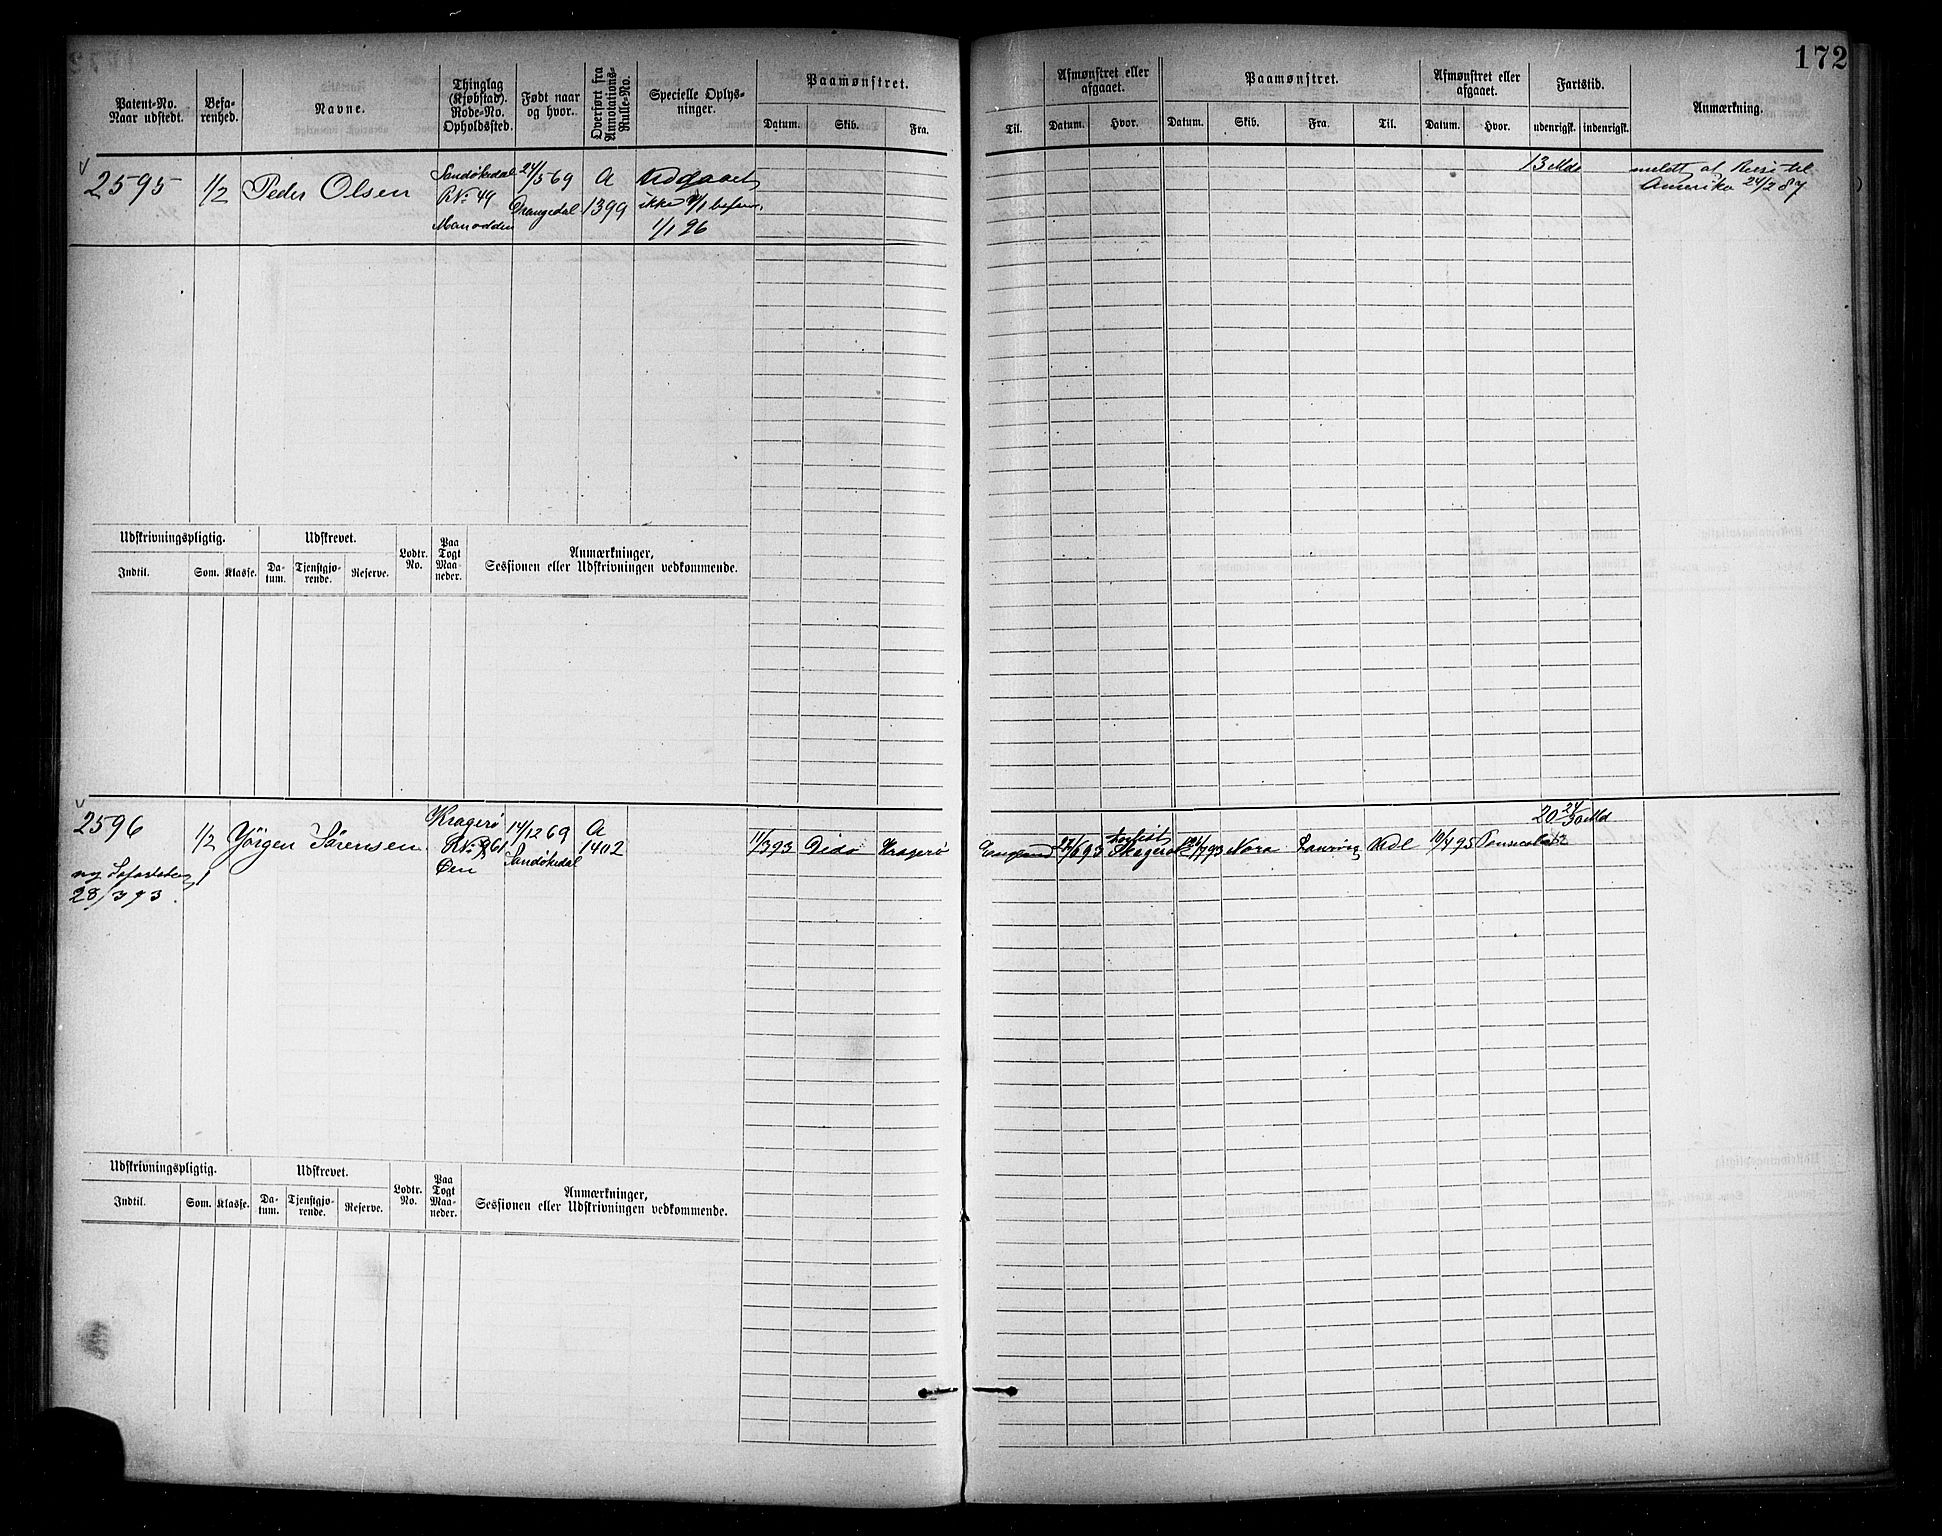 172
Patent-No. Naar udstedt.
Befarenhed.
Navne.
Thinglag (Kjøbstad). Rode-No. Opholdssted.
Født naar og hvor.
Overført fra Annotations-Rulle-No.
Specielle Oplysninger.
Paamønstret.
Datum. Skib. Fra.
Til.
Afmønstret eller afgaaet.
Datum. Hvor.
Paamønstret.
Datum. Skib. Fra. Til.
Afmønstret eller afgaaet.
Datum. Hvor.
Fartstid.
udenrigsk. indenrigsk.
Anmærkning.
2595 1/2 Peder Olsen
Sandøkedal
R№ 49
24/5 69
Drangedal
A
1399
Udgaaet
ikke 1/1 befaren
1/1 96
13 Mdr
meldt at Reise til
Amerika 24/2 87
Udskrivningspligtig. Udskrevet. Lodtr. No. Paa Togt Maaneder. Anmærkninger, Sessionen eller Udskrivningen vedkommende.
Indtil. Som. Klasse. Datum. Tjenstgjørende. Reserve.
2596 1/2 Yörgen Sørensen
28/3 93
Kragerö
Öen
14/12 69
Sandökedal
A
1402
11/3 93 Dido Kragerö
England forlist Skagerak Nora Laurvig Udl 19/4 95
Udskrivningspligtig. Udskrevet. Lodtr. No. Paa Togt Maaneder. Anmærkninger, Sessionen eller Udskrivningen vedkommende.
Indtil. Som. Klasse. Datum. Tjenstgjørende. Reserve.